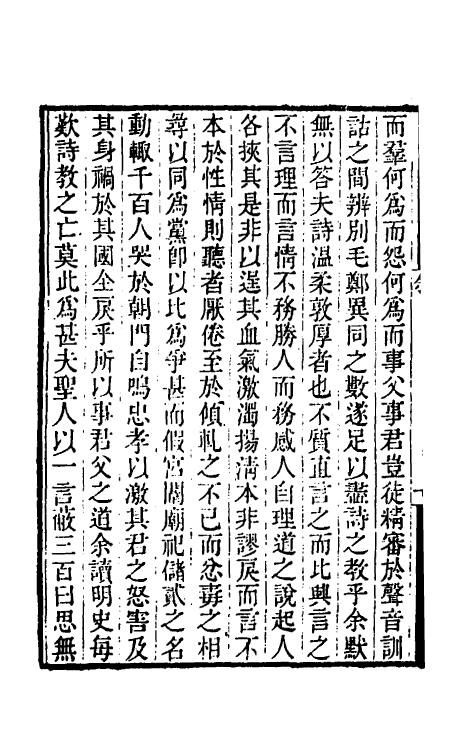 而羣何爲而怨何爲而事父事君豈徒精審於聲音訓
詁之間辨別毛鄭異同之數遂足以盡詩之教乎余默
無以答夫詩溫柔敦厚者也不質直言之而比興言之
不言理而言情不務勝人而務感人自理道之說起人
各挾其是非以逞其血氣激濁揚清本非謬戾而言不
本於性情則聽者厭倦至於傾軋之不已而忿毒之相
尋以同爲黨即以比爲爭甚而假宮闈廟祀儲貳之名
動輒千百人哭於朝門自鳴忠孝以激其君之怒害及
其身禍於其國全戾乎所以事君父之道余讀明史每
歎詩教之亡莫此爲甚夫聖人以一言蔽三百曰思無